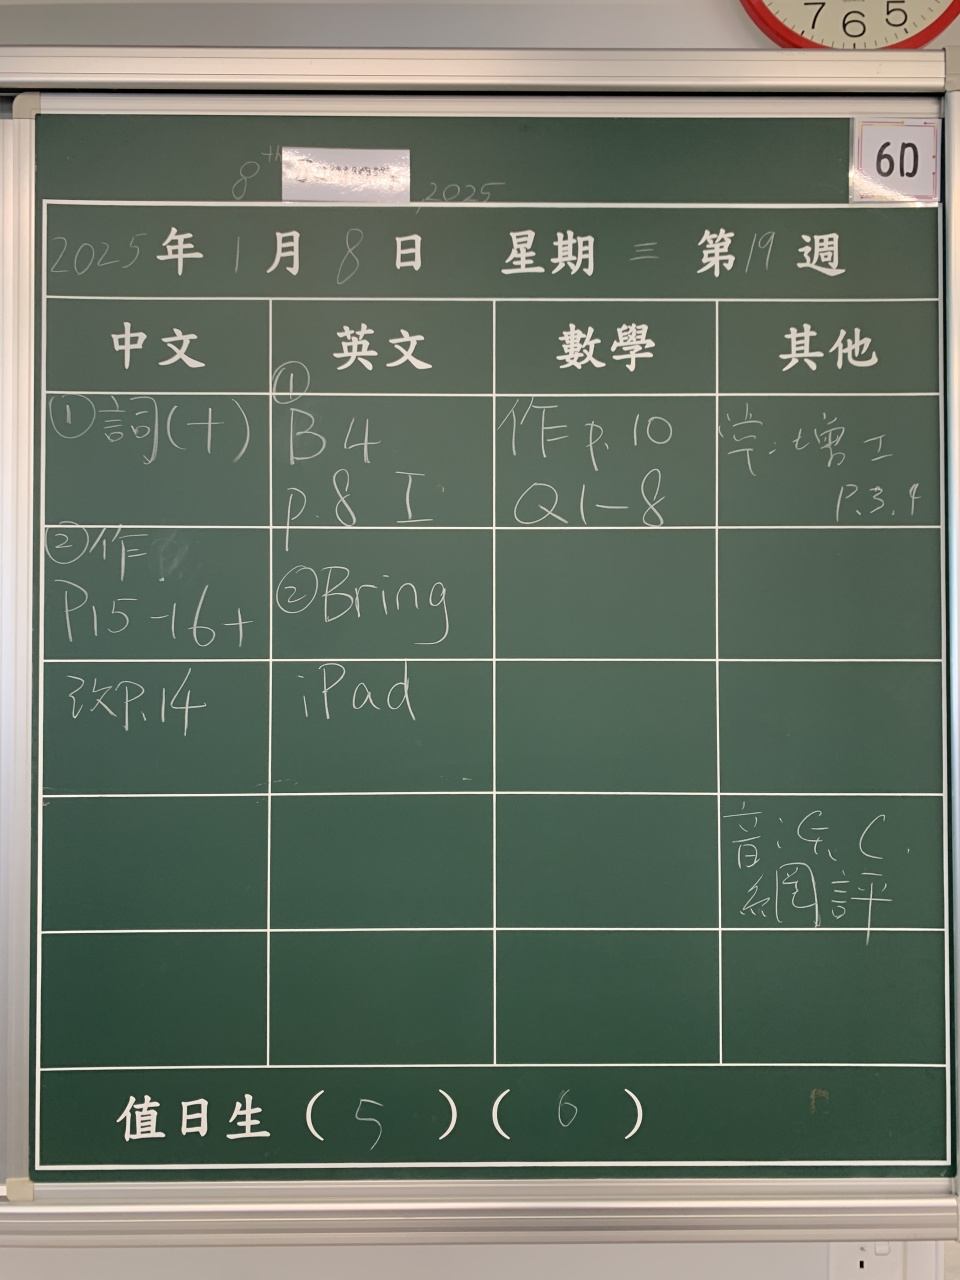 7 6 5
6D
8th
, 2025
2025年1月8日 星期三 第19週
中文 英文 數學 其他
①詞(十)
②作
P15-16+
改P.14
①
B 4
p.8 I
②Bring
iPad
作 p.10
Q1-8
常:增工
P.3,4
音:
網評
值日生(5)(6)